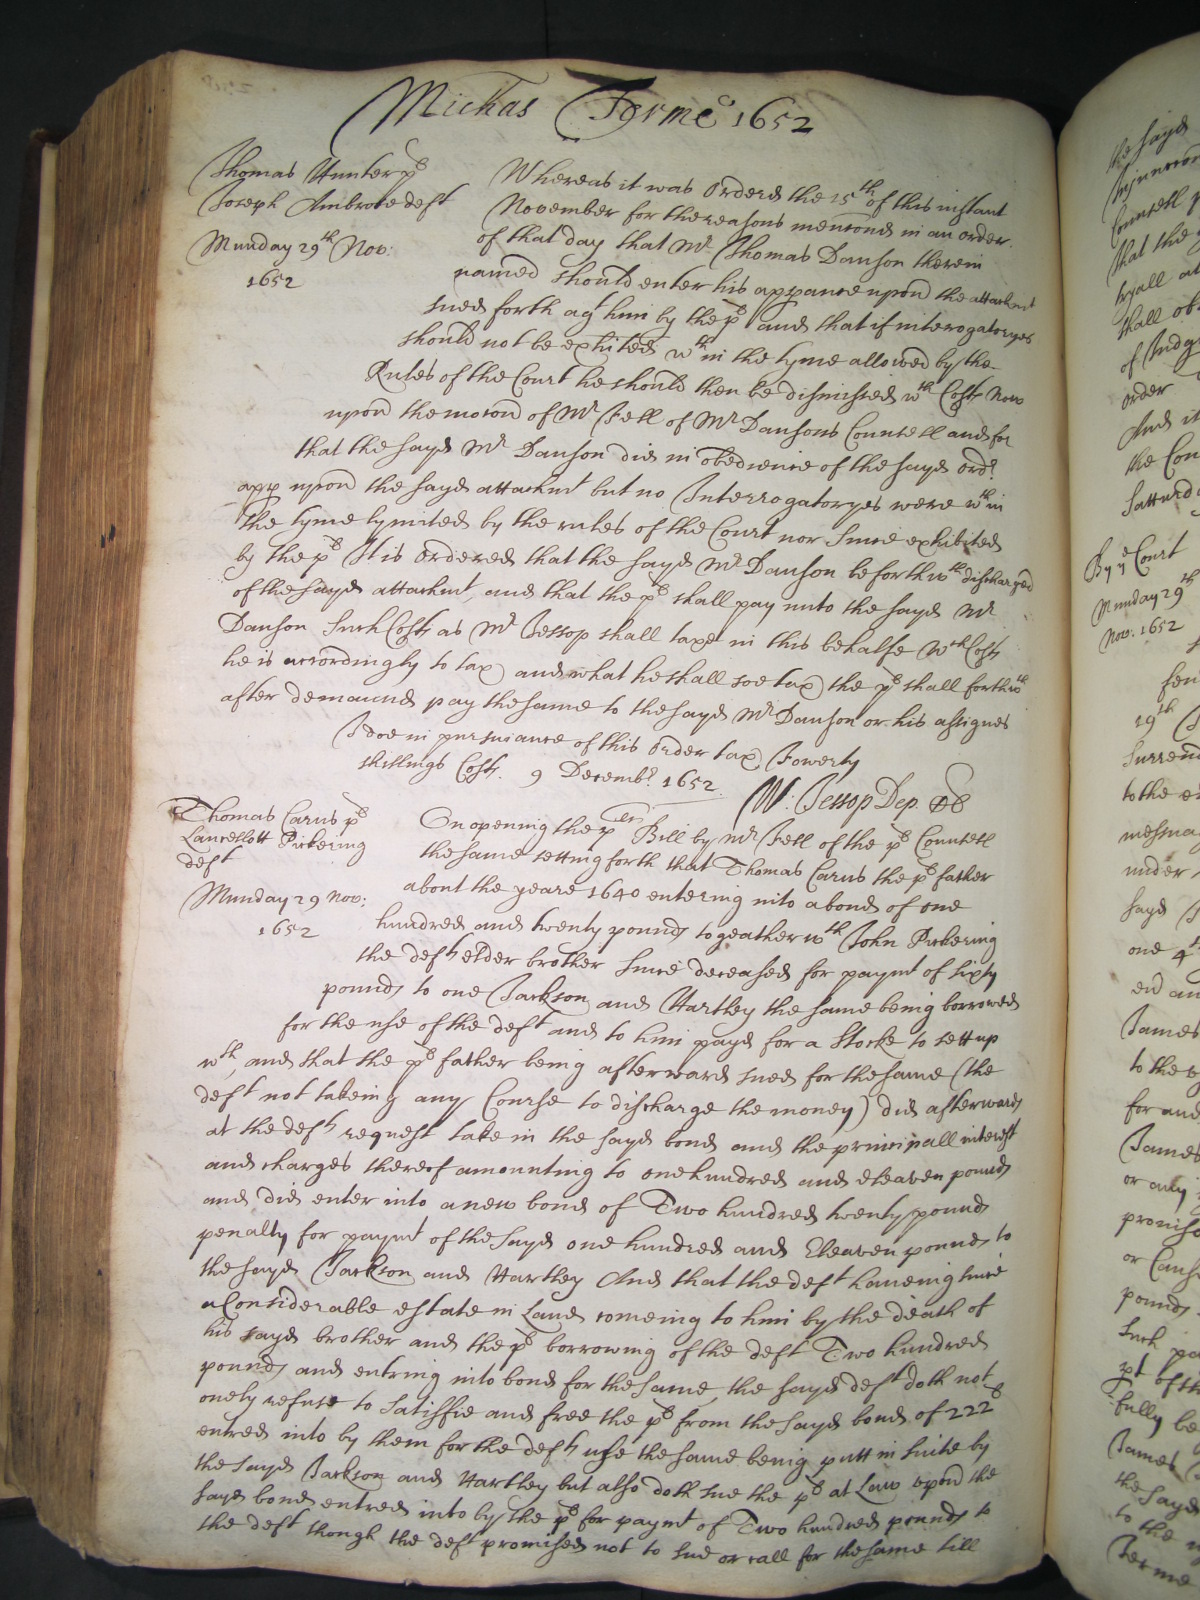 Michas Terme 1652
Thomas Hunter pt
Joseph Ambrose deft
Munday 29th Nov:
1652
Whereas it was Ordered the 15th of this instant
November for the reasons menconed in an order
of that day that Mr Thomas Danson therein
named should enter his appance upon the attachmt
sued forth agt him by the pt and that if interogatoryes
should not be exhited wth in the tyme allowed by the
Rules of the Court he should then be dismissed wth Costs Now
upon the mocon of Mr Fell of Mr Dansons Councell and for
that the sayd Mr Danson did in obedience of the sayd ordr
app upon the sayd attachmt but no Interrogatoryes were wth in
the tyme lymited by the rules of the Court nor Since exhibited
by the pt It is Ordered that the sayd Mr Danson be forthwth discharged
of the sayd attachmt, and that the pt shall pay unto the sayd Mr
Danson Such Costs as Mr Jessop shall taxe in this behalfe Wch Costs
he is accordingly to tax and what he shall soe tax the pt shall forthwth
after demaund pay the same to the sayd Mr Danson or his assignes
I doe in pursuiance of this Order tax Fowerty
shillings Costs. 9 Decembr 1652.
W: Jessop Dep.
Thomas Carus pt
Lancellott Pickering
deft
Munday 29 Nov:
1652
On opening the pts Bill by Mr Fell of the pts Councell
the same setting forth that Thomas Carus the pts father
about the yeare 1640 entering into a bond of one
hundred and twenty pounds togeather wth John Pickering
the defts elder brother Since deceased for paymt of sixty
pounds to one Jackson and Hartley the same being borrowed
for the use of the deft and to him payd for a Stocke to sett up
wth, and that the pts father being afterwards sued for the same (the
deft not takeing any Course to discharge the money) did afterwards
at the defts request take in the sayd bond and the principall interest
and charges thereof amounting to one hundred and eleaven pounds
and did enter into a new bond of Two hundred twenty pounds
penalty for paymt of the Sayd one hundred and Eleaven pounds to
the sayd Jackson and Hartley And that the deft haveing since
a Considerable estate in Land comeing to him by the death of
his sayd brother and the pt borrowing of the deft Two hundred
pounds and entring into bond for the same, the sayd deft doth not
onely refuse to Satisfie and free the pt from the sayd bond of 222
entred into by them for the defts use the same being putt in suite by
the sayd Jackson and Hartley but also doth sue the pt at Law upon the
sayd bond entred into by the pt for paymt of Two hundred pounds to
the deft though the deft promised not to sue or call for the same till
the sayd
Councell
that the
tryall at
shall
order
And it
the Cou
By ye Court
Munday 29th
Nov: 1652
19th
to the
under
sayd
one
James
to the
for and
James
or any
or
pounds
fully be
James
the sayd
to the
Terme